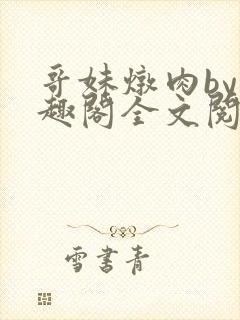 哥妹燉肉by
趣閣全文閱
雪書青